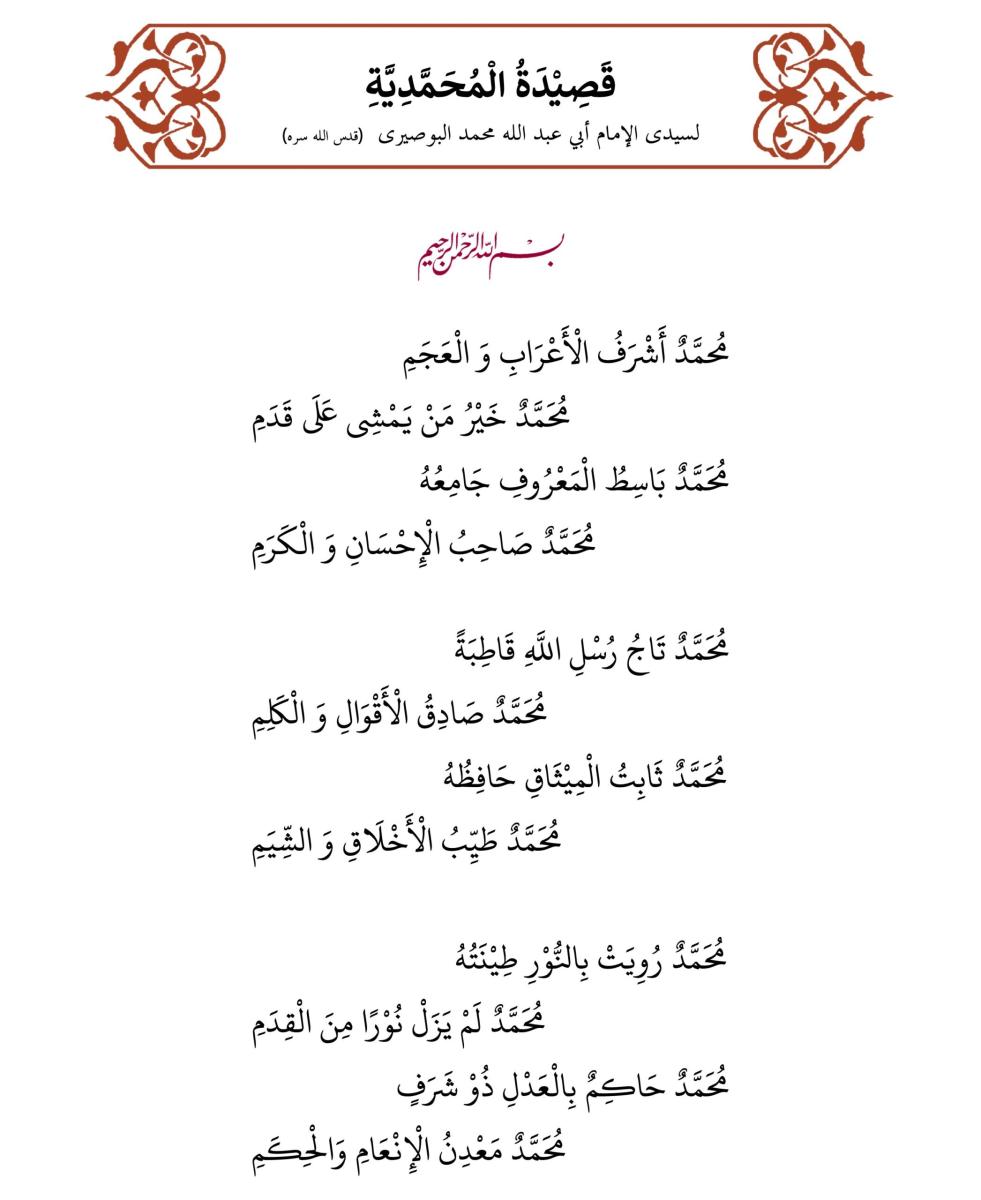 قَصِيْدَةُ الْمُحَمَّدِيَّةِ
لسيدى الإمام أبي عبد الله محمد البوصيرى (قدس الله سره)
بسم الله الرحمن الرحيم
مُحَمَّدٌ أَشْرَفُ الْأَعْرَابِ وَ الْعَجَمِ
مُحَمَّدٌ خَيْرُ مَنْ يَمْشِى عَلَى قَدَمِ
مُحَمَّدٌ بَاسِطُ الْمَعْرُوفِ جَامِعُهُ
مُحَمَّدٌ صَاحِبُ الْإِحْسَانِ وَ الْكَرَمِ
مُحَمَّدٌ تَاجُ رُسْلِ اللَّهِ قَاطِبَةً
مُحَمَّدٌ صَادِقُ الْأَقْوَالِ وَ الْكَلِمِ
مُحَمَّدٌ ثَابِتُ الْمِيْثَاقِ حَافِظُهُ
مُحَمَّدٌ طَيِّبُ الْأَخْلَاقِ وَ الشِّيَمِ
مُحَمَّدٌ رُوِيَتْ بِالنُّوْرِ طِيْنَتُهُ
مُحَمَّدٌ لَمْ يَزَلْ نُوْرًا مِنَ الْقِدَمِ
مُحَمَّدٌ حَاكِمٌ بِالْعَدْلِ ذُوْ شَرَفٍ
مُحَمَّدٌ مَعْدِنُ الْإِنْعَامِ وَالْحِكَمِ